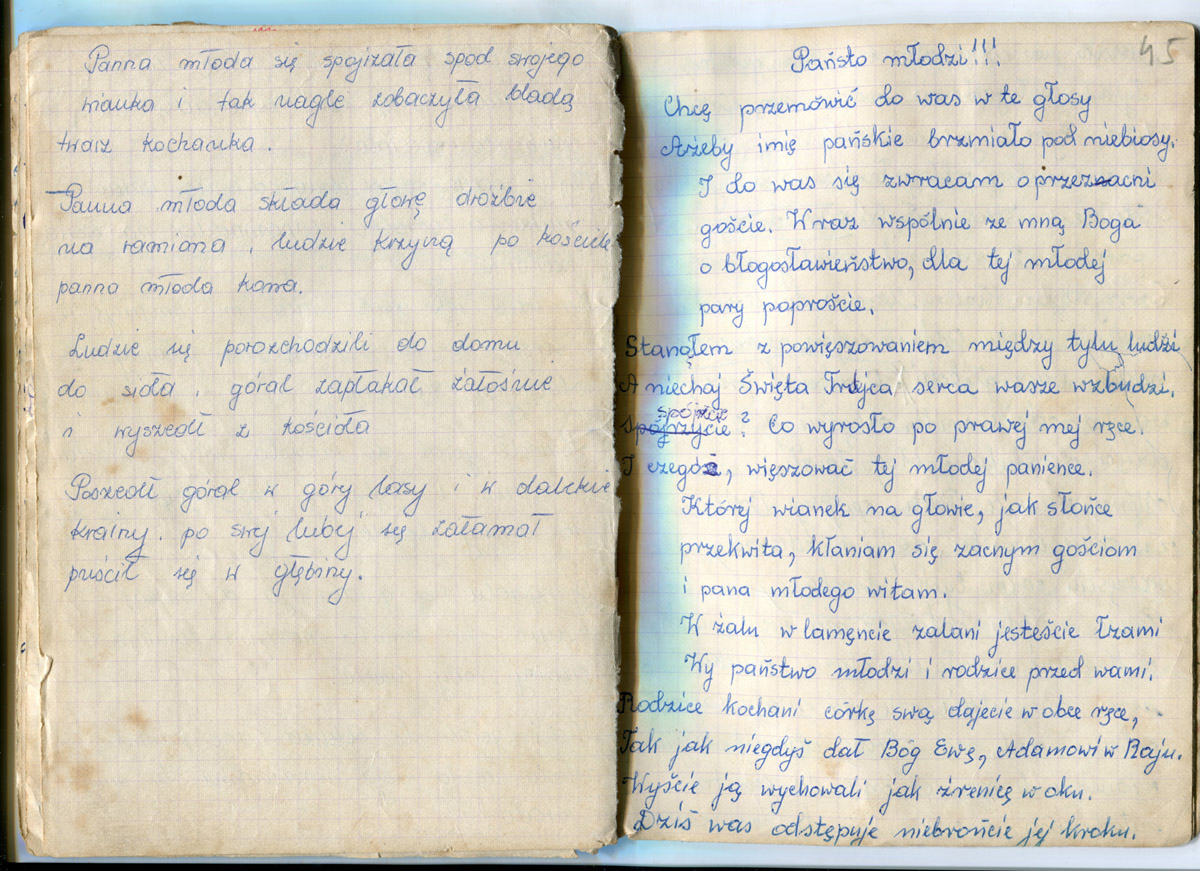 Panna młoda się spojizała spod swojego
wianka i tak nagle zobaczyła bladą
twarz kochanka.
Panna młoda składa głowę dróżbie
na ramiona, ludzie krzyną po kościele
panna młoda kona.
Ludzie się porozchodzili do domu
do sioła, góral zapłakał żałośnie
i wyszedł z kościoła
Poszedł góral w góry lasy i w dalekie
krainy. po swej lubej się załamał
puścił się w głębiny.
45
Państo młodzi!!!
Chcę przemówić do was w te głosy
Ażeby imię pańskie brzmiało pod niebiosy.
I do was się zwracam o przezacni
goście. Wraz wspólnie ze mną Boga
o błogosławieństwo, dla tej młodej
pary poproście.
Stanąłem z powięszowaniem między tylu ludźi
A niechaj Święta Trójca serca wasze wzbudzi.
spójżcie
Spójrzycie? Co wyrosło po prawej mej ręce.
I czegóż, więszować tej młodej panience.
Której wianek na głowie, jak słońce
przekwita, kłaniam się zacnym gościom
i pana młodego witam.
W żalu w lamęncie zalani jesteście łzami
Wy państwo młodzi i rodzice przed wami.
Rodzice kochani córkę swą dajecie w obce ręce,
Tak jak niegdyś dał Bóg Ewę, Adamowi w Raju.
Wyście ją wychowali jak źrenicę w oku.
Dziś was odstępuje niebrońcie jej kroku.